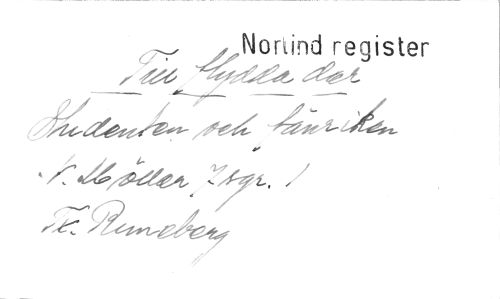 Norlind register
Till skydda dar
Studenten och fänriken
N. Möller, 7 sgr. 1
Fr. Runeberg